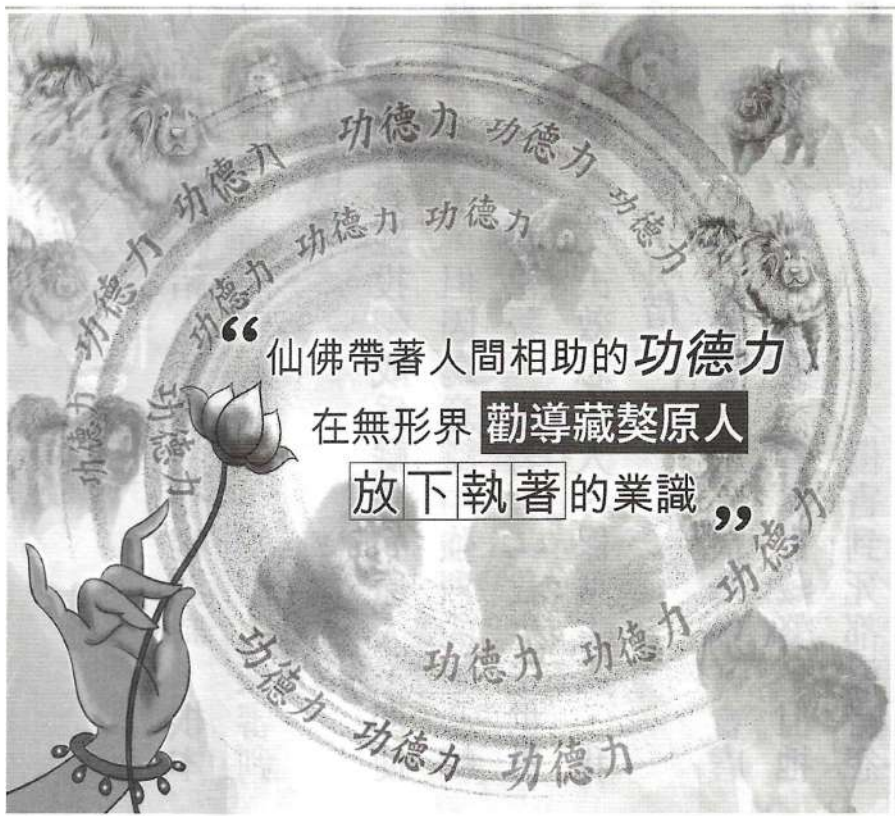 功德力 功德力
功德力
功德力
功德力 功德力
功德力
功德力
功德力
功德力
功德力
“仙佛帶著人間相助的功德力
在無形界 勸導藏獒原人
放下執著的業識”
功德力
功德力
功德力
功德力
功德力 功德力